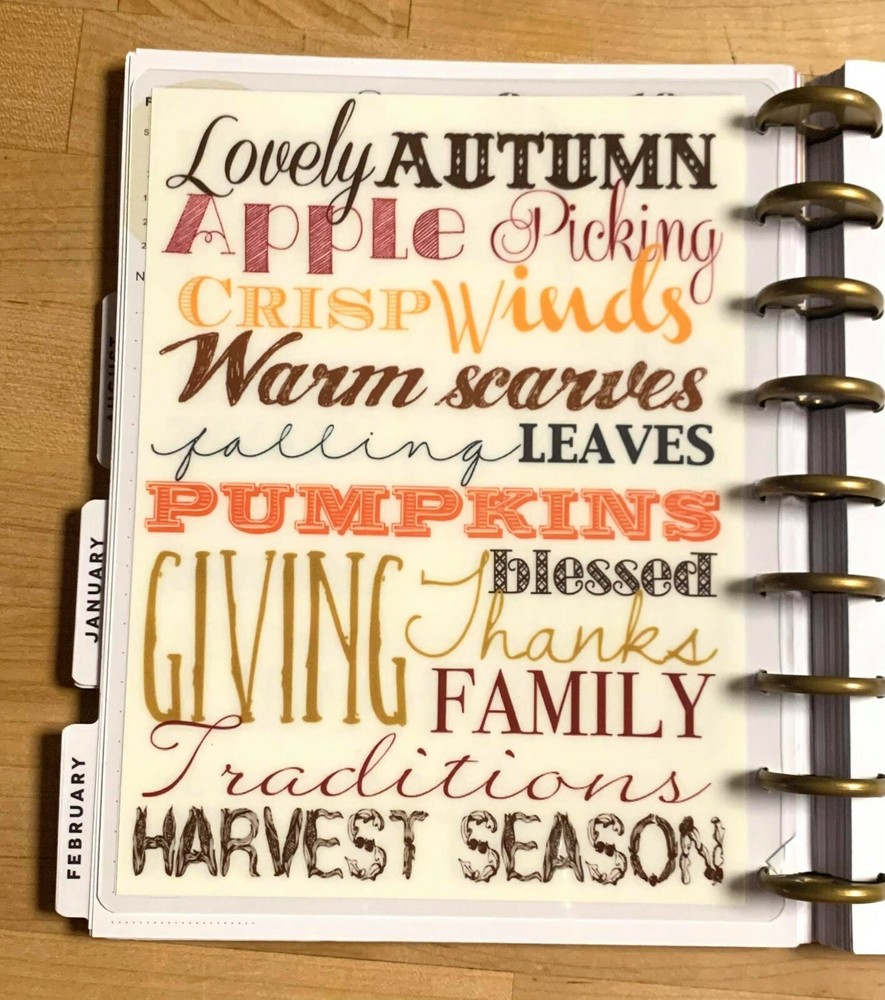 Lovely AUTUMN
Apple Picking
CRISP Winds
Warm scarves
falling LEAVES
PUMPKINS
blessed
GIVING Thanks
FAMILY
Traditions
HARVEST SEASON
AUGUST
JANUARY
FEBRUARY